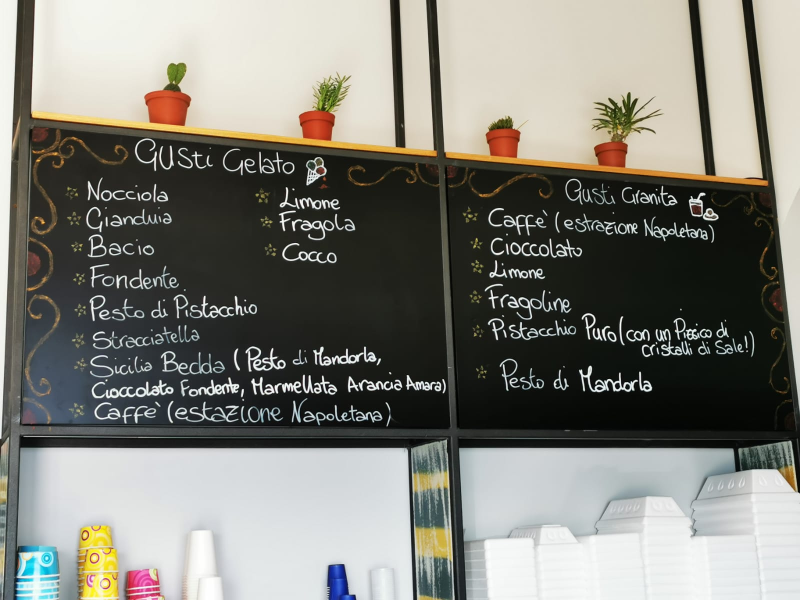 GUSti Gelato
Nocciola
Gianduia
Bacio
Fondente
Pesto di Pistacchio
Stracciatella
Sicilia Bedda (Pesto di Mandorla,
Cioccolato Fondente, Marmellata Arancia Amara)
Caffe' (estazione Napoletana)
Limone
Fragola
Cocco
Gusti Granita
Caffe' (estrazione Napoletana)
Cioccolato
Limone
Fragoline
Pistacchio Puro (con un Pizzico di
cristalli di Sale!)
Pesto di Mandorla